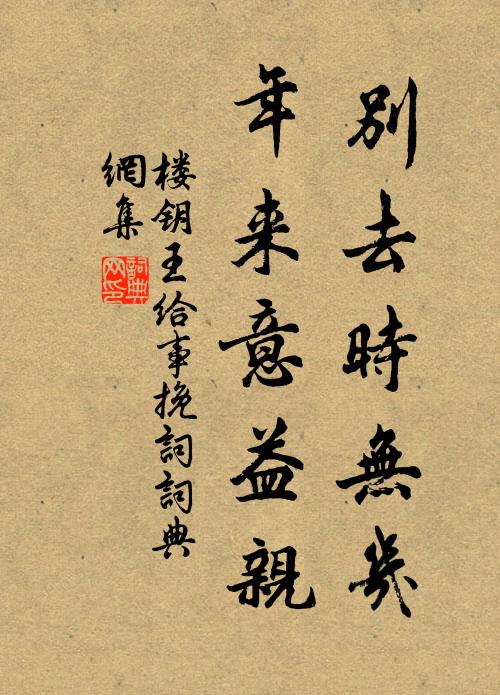 別去時無幾
年来意益親
楼钥王给事挽詞詞典
網集
詞典網印